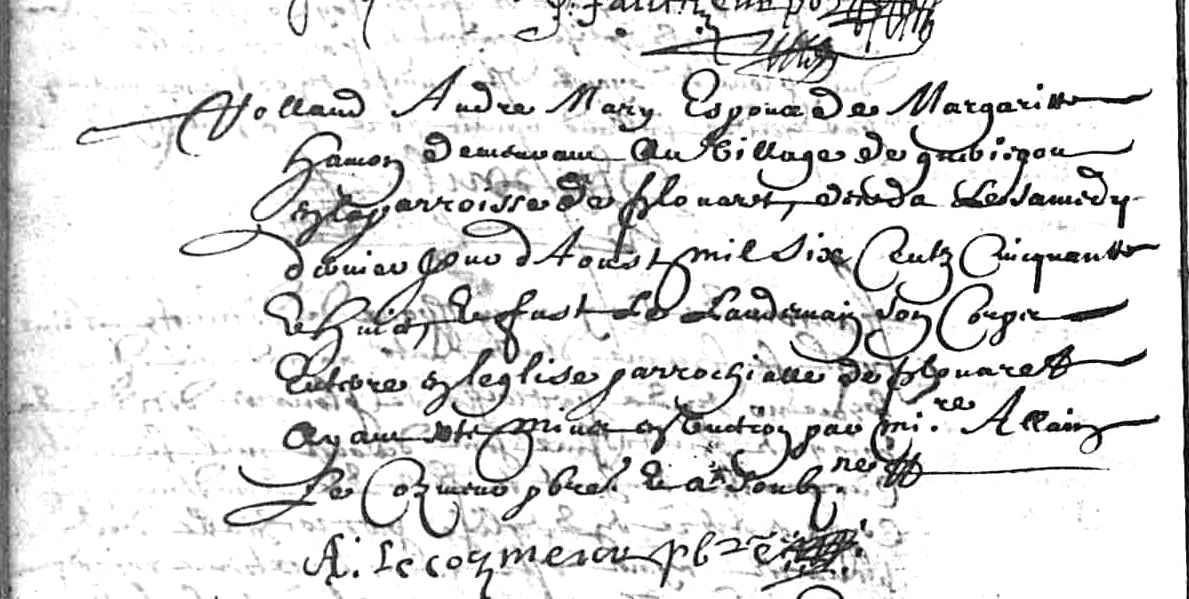 Yolland Andre Mary Espoux de Margaritte
Hamon demeurant au village de
en la parroisse de Plouaret, deceda le samedy
dernier jour d'Aoust mil six centz cinquante
et huict, et fust le landemain son corps
enterre en leglise parrochialle de Plouaret
ayant este mins en par mi.re Allain
Le Cozmeur pbre. et a soubz.ne
A: Le cozmeur pbre